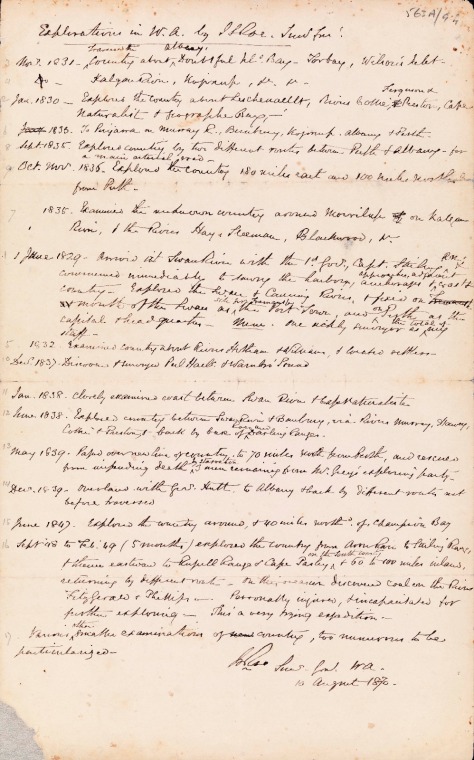 563A/44
Explorations in W.A. by J S Roe. Surv. Genl.
Nov. 1831 - Country about Doubtful Isl. Bay - Torbay, Wilson's Inlet
Kalgan River, Kojonup, &c. &c.
Jan. 1830 - Explored the country about Leschenault, Rivers Collie, & Preston, Cape
Ferguson &
Naturaliste & Geographe Bay -
1835. To Pinjarra on Murray R., Bunbury, Kojonup, Albany & Perth.
Sept. 1835. Explored country by two different routes between Perth & Albany - for
a main road -
Oct. Nov. 1836. Explored the country 180 miles east and 100 miles north
from Perth.
7 1835. Examined the unknown country around Morrilup on Kalgan
River, & the Rivers Hay & Sleeman, Blackwood, &c -
1 June 1829 - Arrived at Swan River with the 1st Govr. Capt. Stirling R.N.;
commenced immediately to survey the harbors, anchorages & coast
approaches adjacent
country - Explored the Swan & Canning Rivers, & fixed on
mouth of the Swan as the Port Town, and on Perth as the
capital & head quarters - Mem. one sickly surveyor as my
the total of
staff -
5 1832. Examined country about Rivers Hotham & Williams, & located settlers
10 Decr. 1837. Discovd. & surveyed Peel Harbr. & Warnbro' Sound
Jan. 1838. Closely examined coast between Swan River & Cape Naturaliste
12 June 1838. Explored country between Swan River & Bunbury, via Rivers Murray, Harvey,
Collie & Preston, & back by base of Darling Range.
13 May 1839. Passed over new line of country, to 70 miles north from Perth, and rescued
from impending death 3 men remaining from Mr. Grey's exploring party -
by starvation
14 Decr. 1839 - Overland with Govr. Hutt, to Albany & back by different routes not
before traversed
15 June 1847. Explored the country around, & 40 miles northd. of Champion Bay
16 Sept. '48 to Feb. '49 (5 months) explored the country from Avon River to Stirling Range,
& thence eastward to Russell Range & Cape Pasley, & 60 to 100 miles inland,
on the south coast
returning by different route - On this occasion discovered coal on the Rivers
FitzGerald & Phillips -. Personally injured, & incapacitated for
further exploring - This a very trying expedition -
17 Various other smaller examinations of country, too numerous to be
particularized -
J S Roe Surv. Genl. W.A.
10 August 1870 -